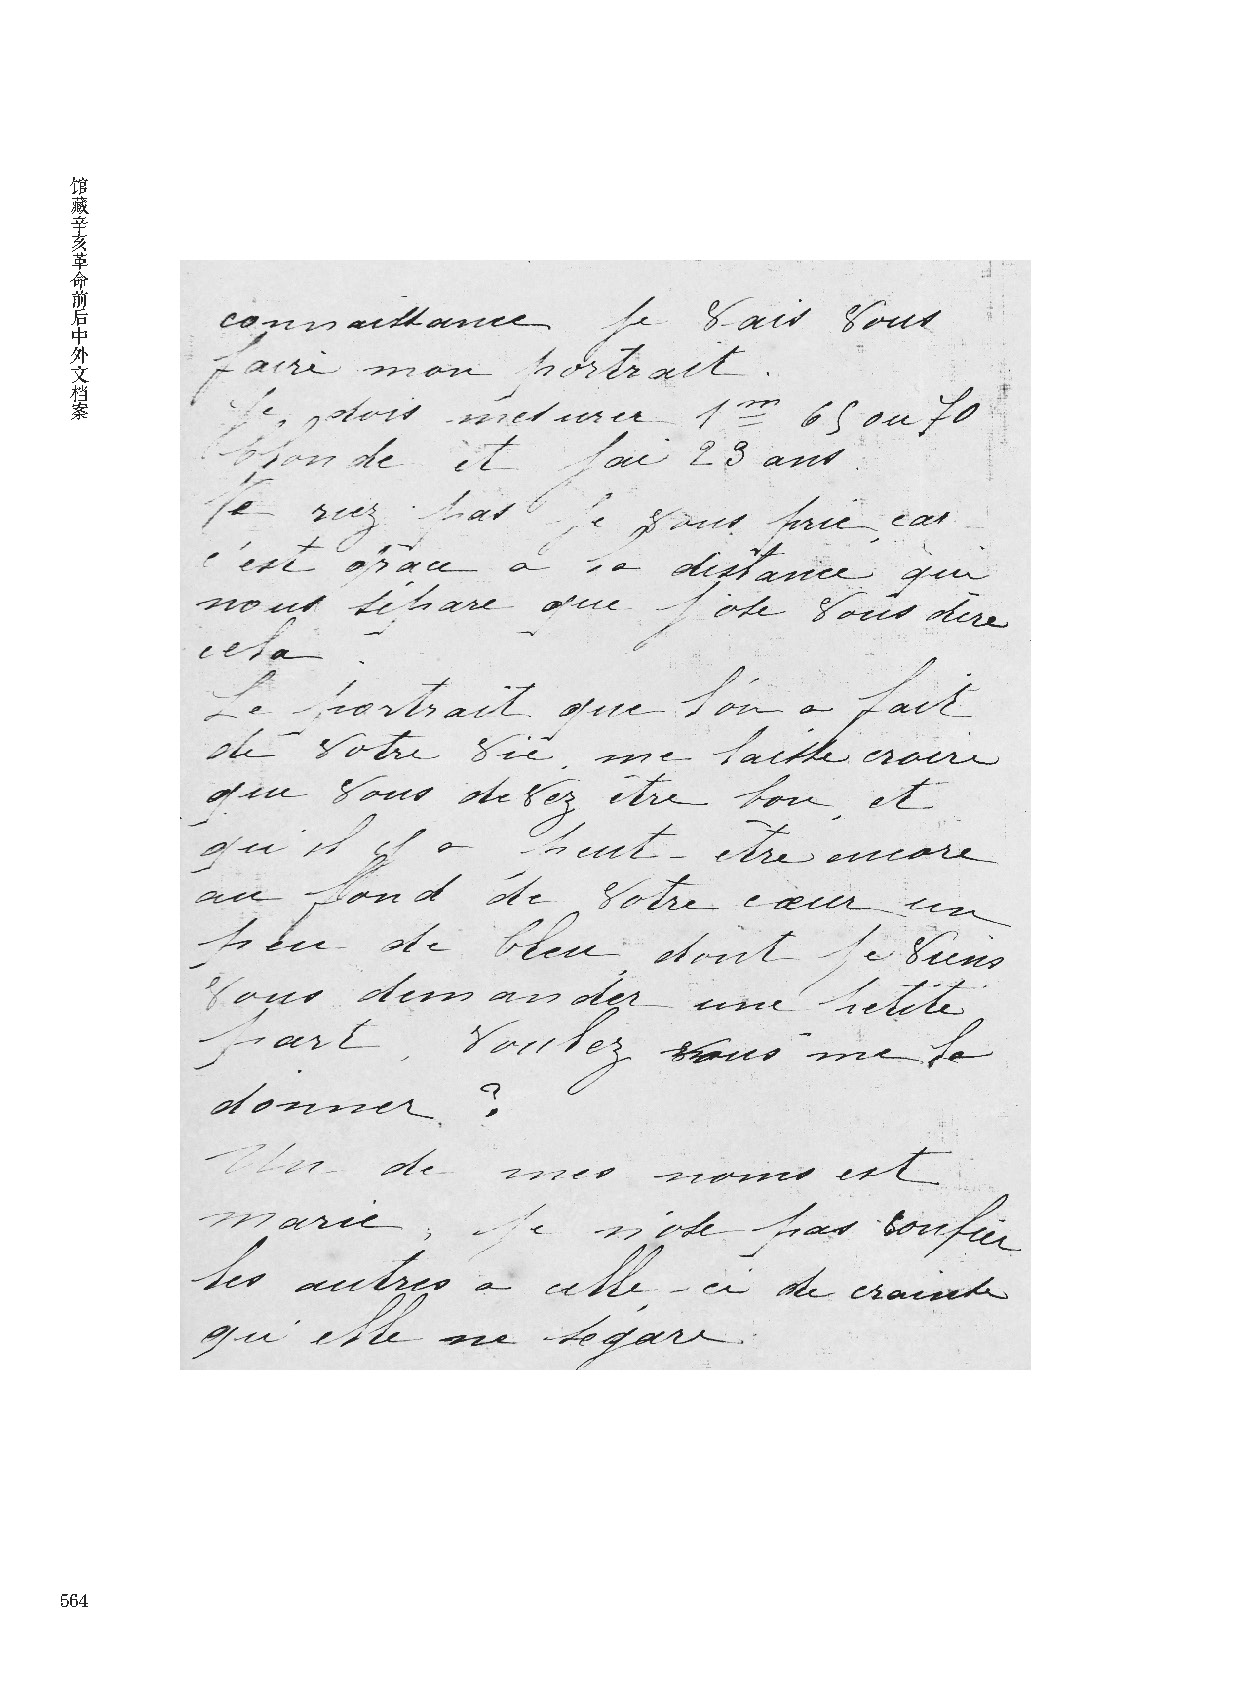 馆藏辛亥革命前后中外文档案
connaissance je vais vous
faire mon portrait.
Je dois mesurer 1m 65 ou 70
blonde et j'ai 23 ans.
Ne riez pas je vous prie, car
c'est grâce a la distance qui
nous sépare que j'ose vous dire
cela.
Le portrait que l'on a fait
de votre vie, me laisse croire
que vous devez être bon, et
qu'il y a peut-être encore
au fond de votre cœur un
peu de bleu, dont je viens
vous demander une petite
part, voulez vous me la
donner ?
Un de mes noms est
marie, je n'ose pas confier
les autres a celle-ci de crainte
qu'elle ne s'égare.
564